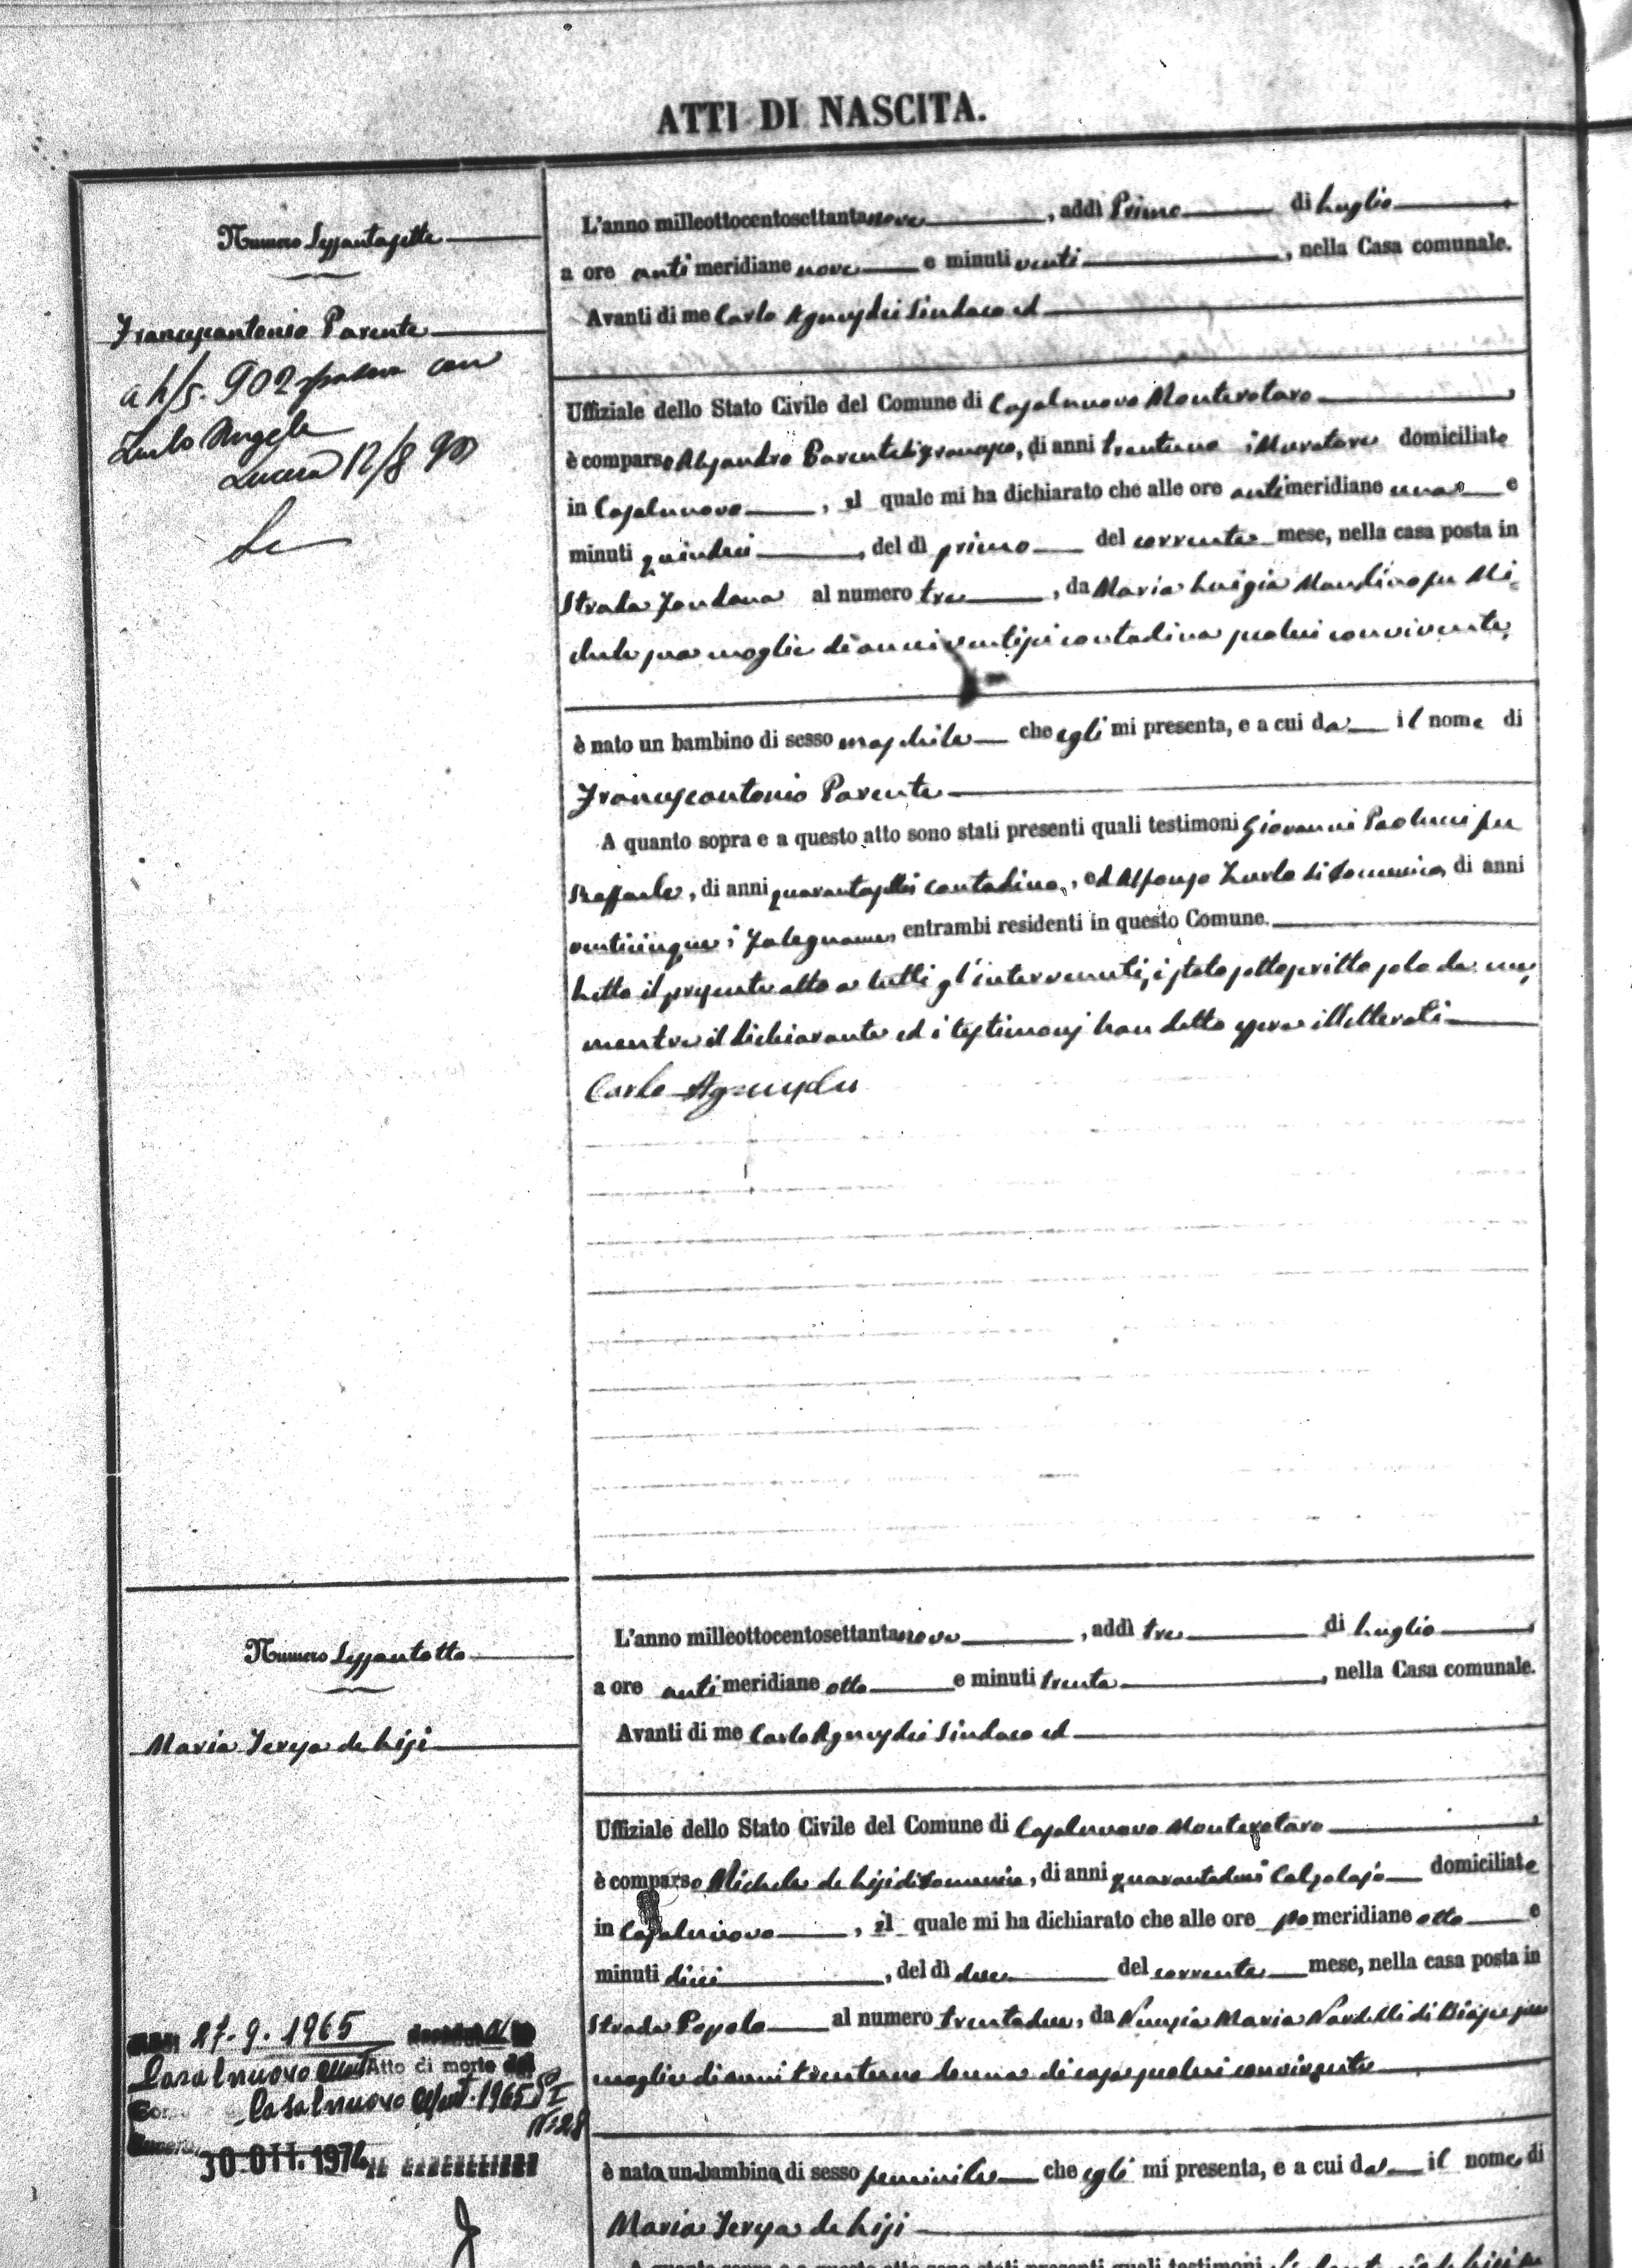 ATTI DI NASCITA.
Numero Sessantasette
Francescantonio Parente
a 4/5. 902 sposava con
Zurlo Angela
Lucera 12/8 902
L'anno milleottocentosettantanove, addì Primo di Luglio
a ore antimeridiane nove e minuti venti, nella Casa comunale.
Avanti di me Carlo Agnusdei Sindaco ed
Uffiziale dello Stato Civile del Comune di Casalnuovo Monterotaro
è comparso Alessandro Parente di Francesco, di anni trentuno Muratore domiciliato
in Casalnuovo, il quale mi ha dichiarato che alle ore antimeridiane una e
minuti quindici, del dì primo del corrente mese, nella casa posta in
Strada Fontana al numero tre, da Maria Luigia Mandino fu Mi=
chele sua moglie di anni ventisei contadina seco lui convivente,
è nato un bambino di sesso maschile che egli mi presenta, e a cui da il nome di
Francescantonio Parente
A quanto sopra e a questo atto sono stati presenti quali testimoni Giovanni Paolucci fu
Raffaele, di anni quarantasei contadino, ed Alfonso Zurlo di Domenico, di anni
venticinque, Falegname, entrambi residenti in questo Comune.
Letto il presente atto a tutti gl'intervenuti, è stato sottoscritto solo da me,
mentre il dichiarante ed i testimonj han detto essere illetterati
Carlo Agnusdei
Numero Sessantotto
Maria Teresa de Lisi
27-9-1965
Casalnuovo Mont Atto di morte del
Casalnuovo Mont. 1965 P I
N. 28
30 OTT. 1974
L'anno milleottocentosettantanove, addì tre di Luglio
a ore antimeridiane otto e minuti trenta, nella Casa comunale.
Avanti di me Carlo Agnusdei Sindaco ed
Uffiziale dello Stato Civile del Comune di Casalnuovo Monterotaro
è comparso Michele de Lisi di Domenico, di anni quarantadue Calzolajo domiciliato
in Casalnuovo, il quale mi ha dichiarato che alle ore pomeridiane otto e
minuti dieci, del dì due del corrente mese, nella casa posta in
Strada Popolo al numero trentadue, da Nunzia Maria Nardelli di Biase sua
moglie di anni trentuno donna di casa seco lui convivente
è nata un bambina di sesso feminile che egli mi presenta, e a cui da il nome di
Maria Teresa de Lisi
A quanto sopra e a questo atto sono stati presenti quali testimoni